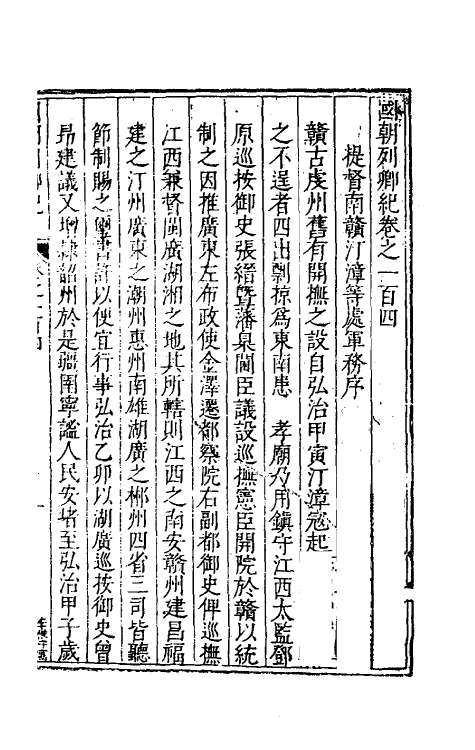 國朝列卿紀卷之一百四
提督南贛汀漳等處軍務序
贛古虔州舊有開撫之設自弘治甲寅汀漳寇起
之不逞者四出剽掠爲東南患 孝廟乃用鎮守江西太監鄧
原巡按御史張縉暨藩臬閫臣議設巡撫憲臣開院於贛以統
制之因推廣東左布政使金澤遷都察院右副都御史俾巡撫
江西兼督閩廣湖湘之地其所轄則江西之南安贛州建昌福
建之汀州廣東之潮州惠州南雄湖廣之郴州四省三司皆聽
節制賜之璽書許以便宜行事弘治乙卯以湖廣巡按御史曾
昂建議又增隸韶州於是疆圉寧謐人民安堵至弘治甲子歲